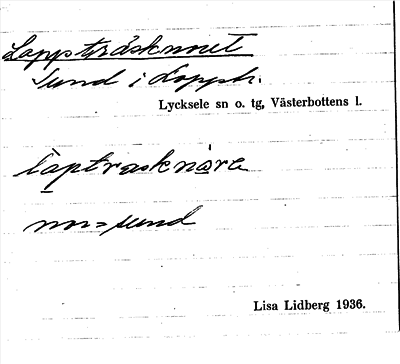 Lappträsknoret
Sund i Lapptr.
Lycksele sn o. tg, Västerbottens l.
làptrasknòre
nor = sund
Lisa Lidberg 1936.